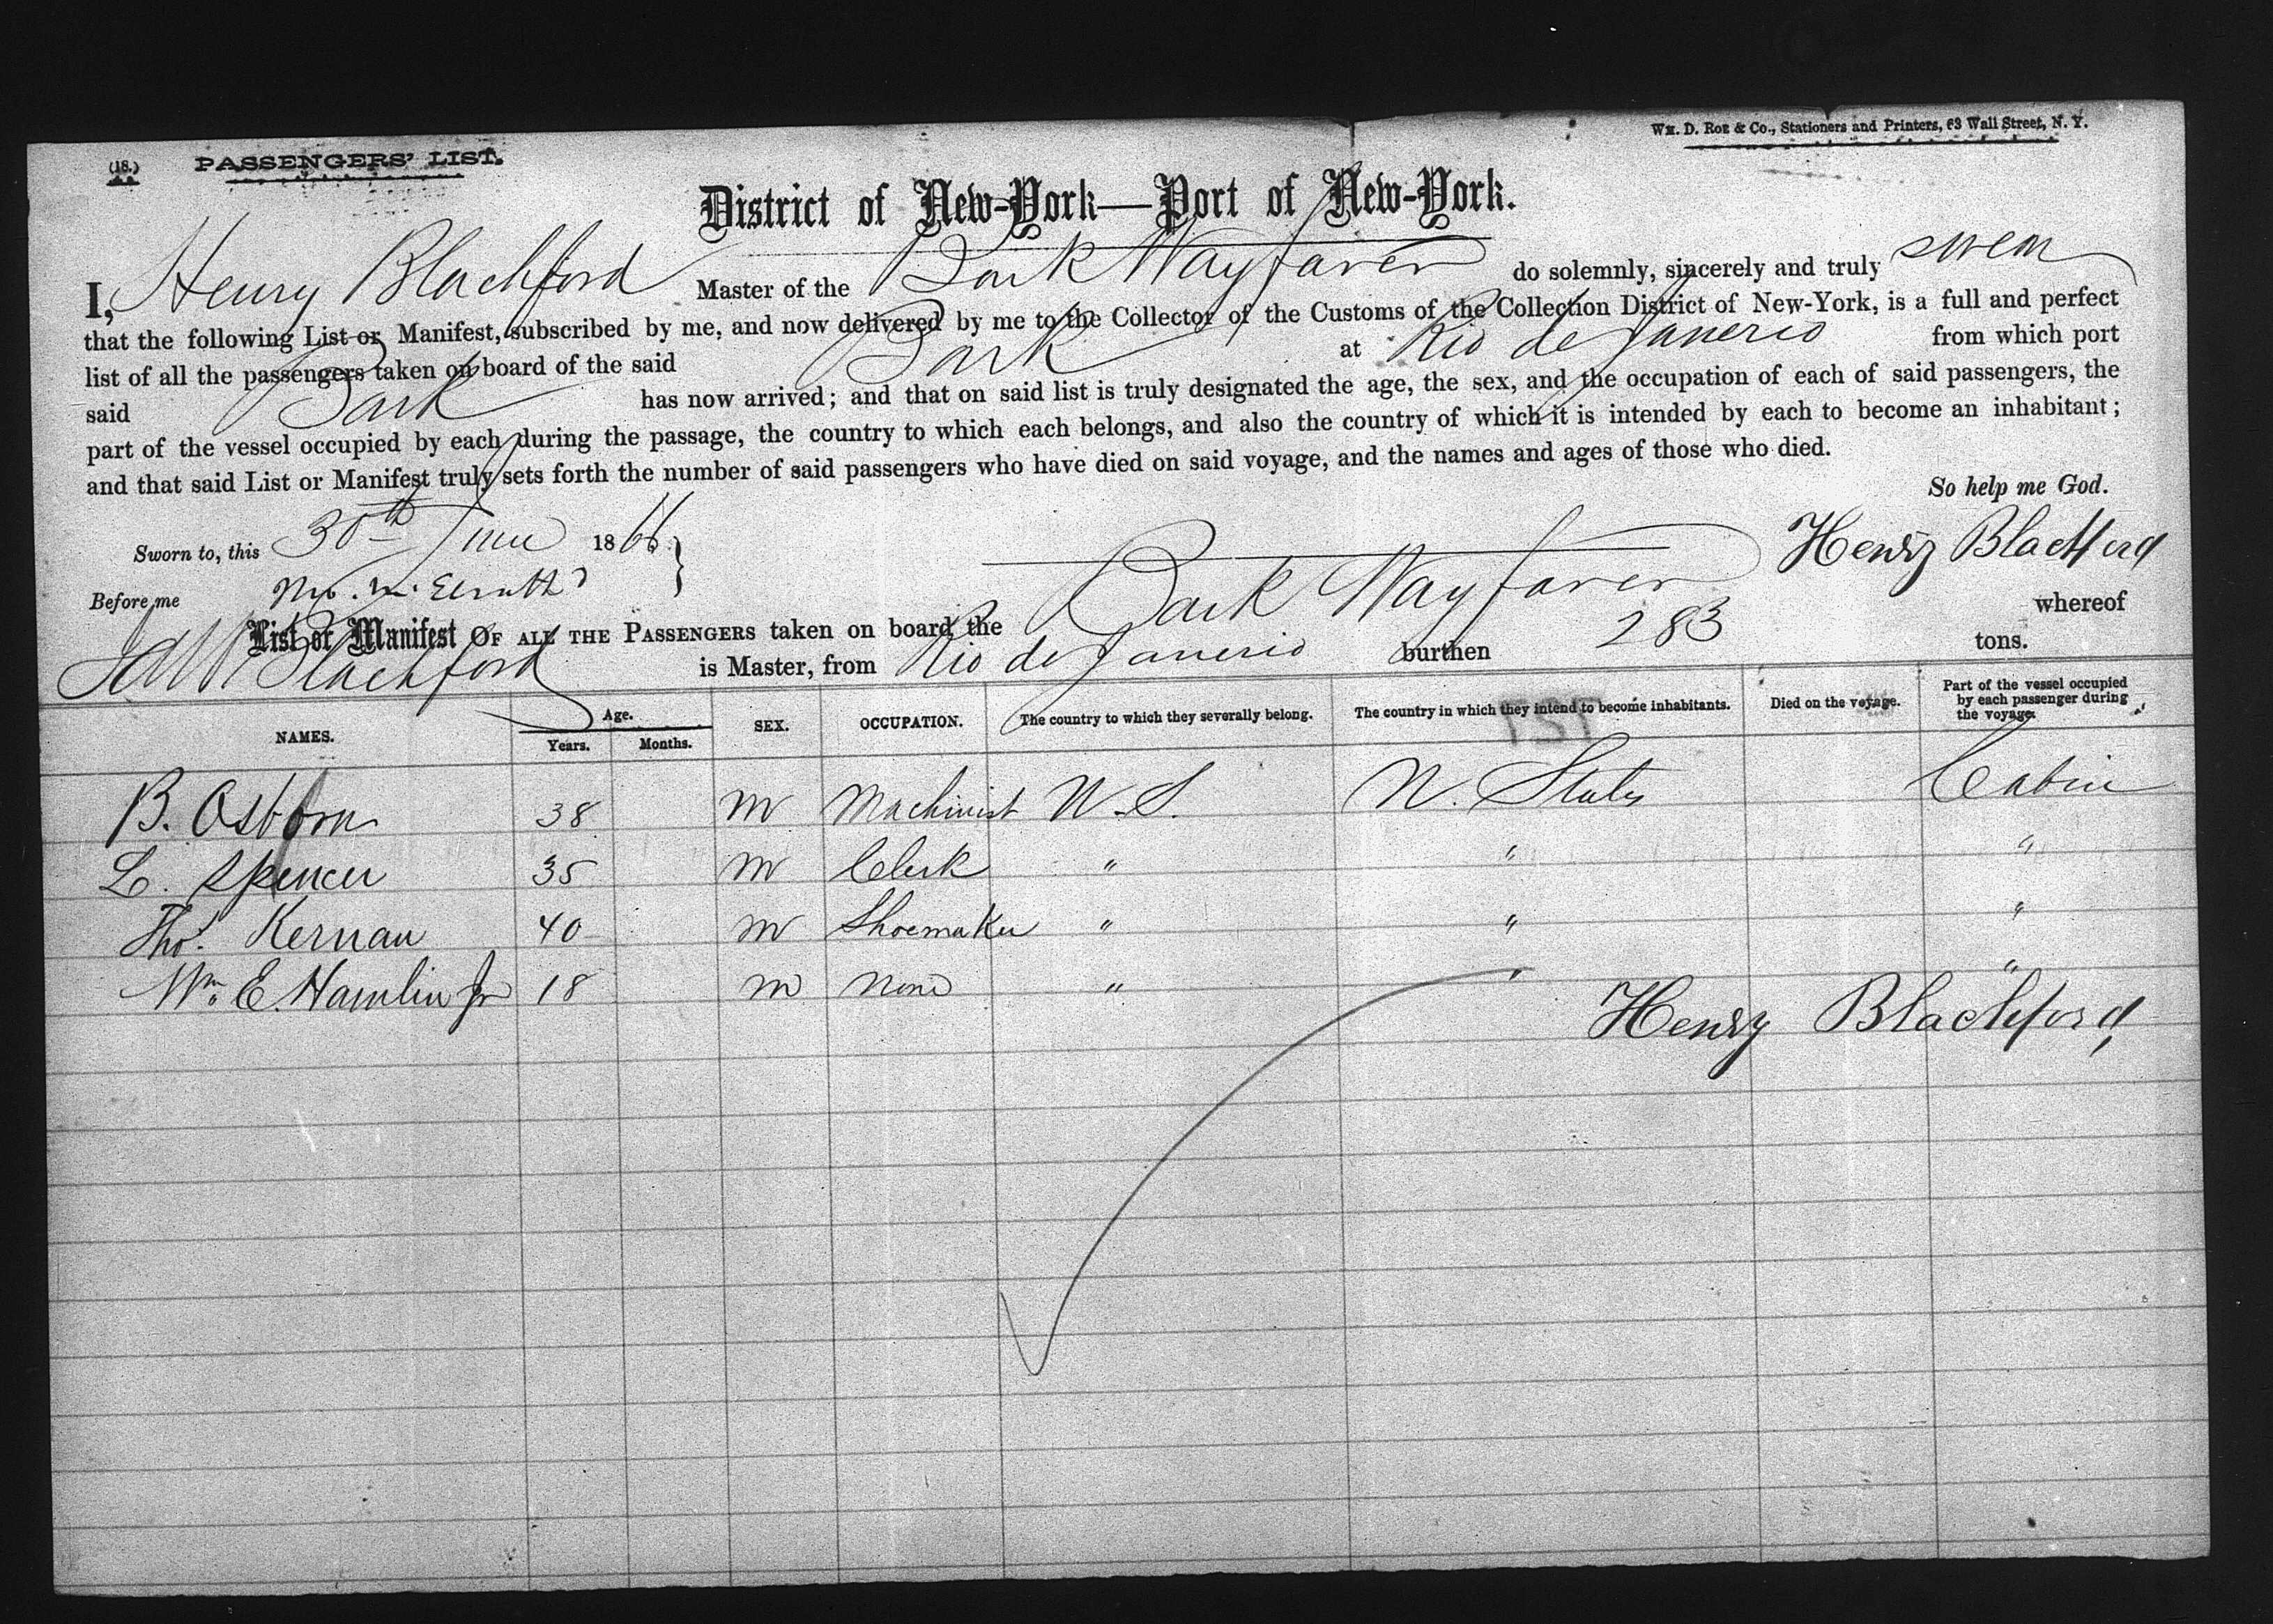 (18.) PASSENGERS' LIST.
Wm. D. Roe & Co., Stationers and Printers, 63 Wall Street, N. Y.
District of New-York—Port of New-York.
I, Henry Blachford Master of the Bark Wayfarer do solemnly, sincerely and truly swear
that the following List or Manifest, subscribed by me, and now delivered by me to the Collector of the Customs of the Collection District of New-York, is a full and perfect
list of all the passengers taken on board of the said Bark at Rio de Janerio from which port
said Bark has now arrived; and that on said list is truly designated the age, the sex, and the occupation of each of said passengers, the
part of the vessel occupied by each during the passage, the country to which each belongs, and also the country of which it is intended by each to become an inhabitant;
and that said List or Manifest truly sets forth the number of said passengers who have died on said voyage, and the names and ages of those who died.
So help me God.
Sworn to, this 30th June 1866.
Henry Blachford
Before me
List or Manifest OF ALL THE PASSENGERS taken on board the Bark Wayfarer whereof
Blachford is Master, from Rio de Janerio burthen 283 tons.
NAMES. Age. Years. Months. SEX. OCCUPATION. The country to which they severally belong. The country in which they intend to become inhabitants. Died on the voyage. Part of the vessel occupied by each passenger during the voyage.
B. Osborn 38 M Machinist U.S. U. States Cabin
L. Spencer 35 M Clerk " " "
Tho. Kernan 40 M Shoemaker " " "
Wm. E. Hamlin Jr 18 M None " " "
Henry Blachford